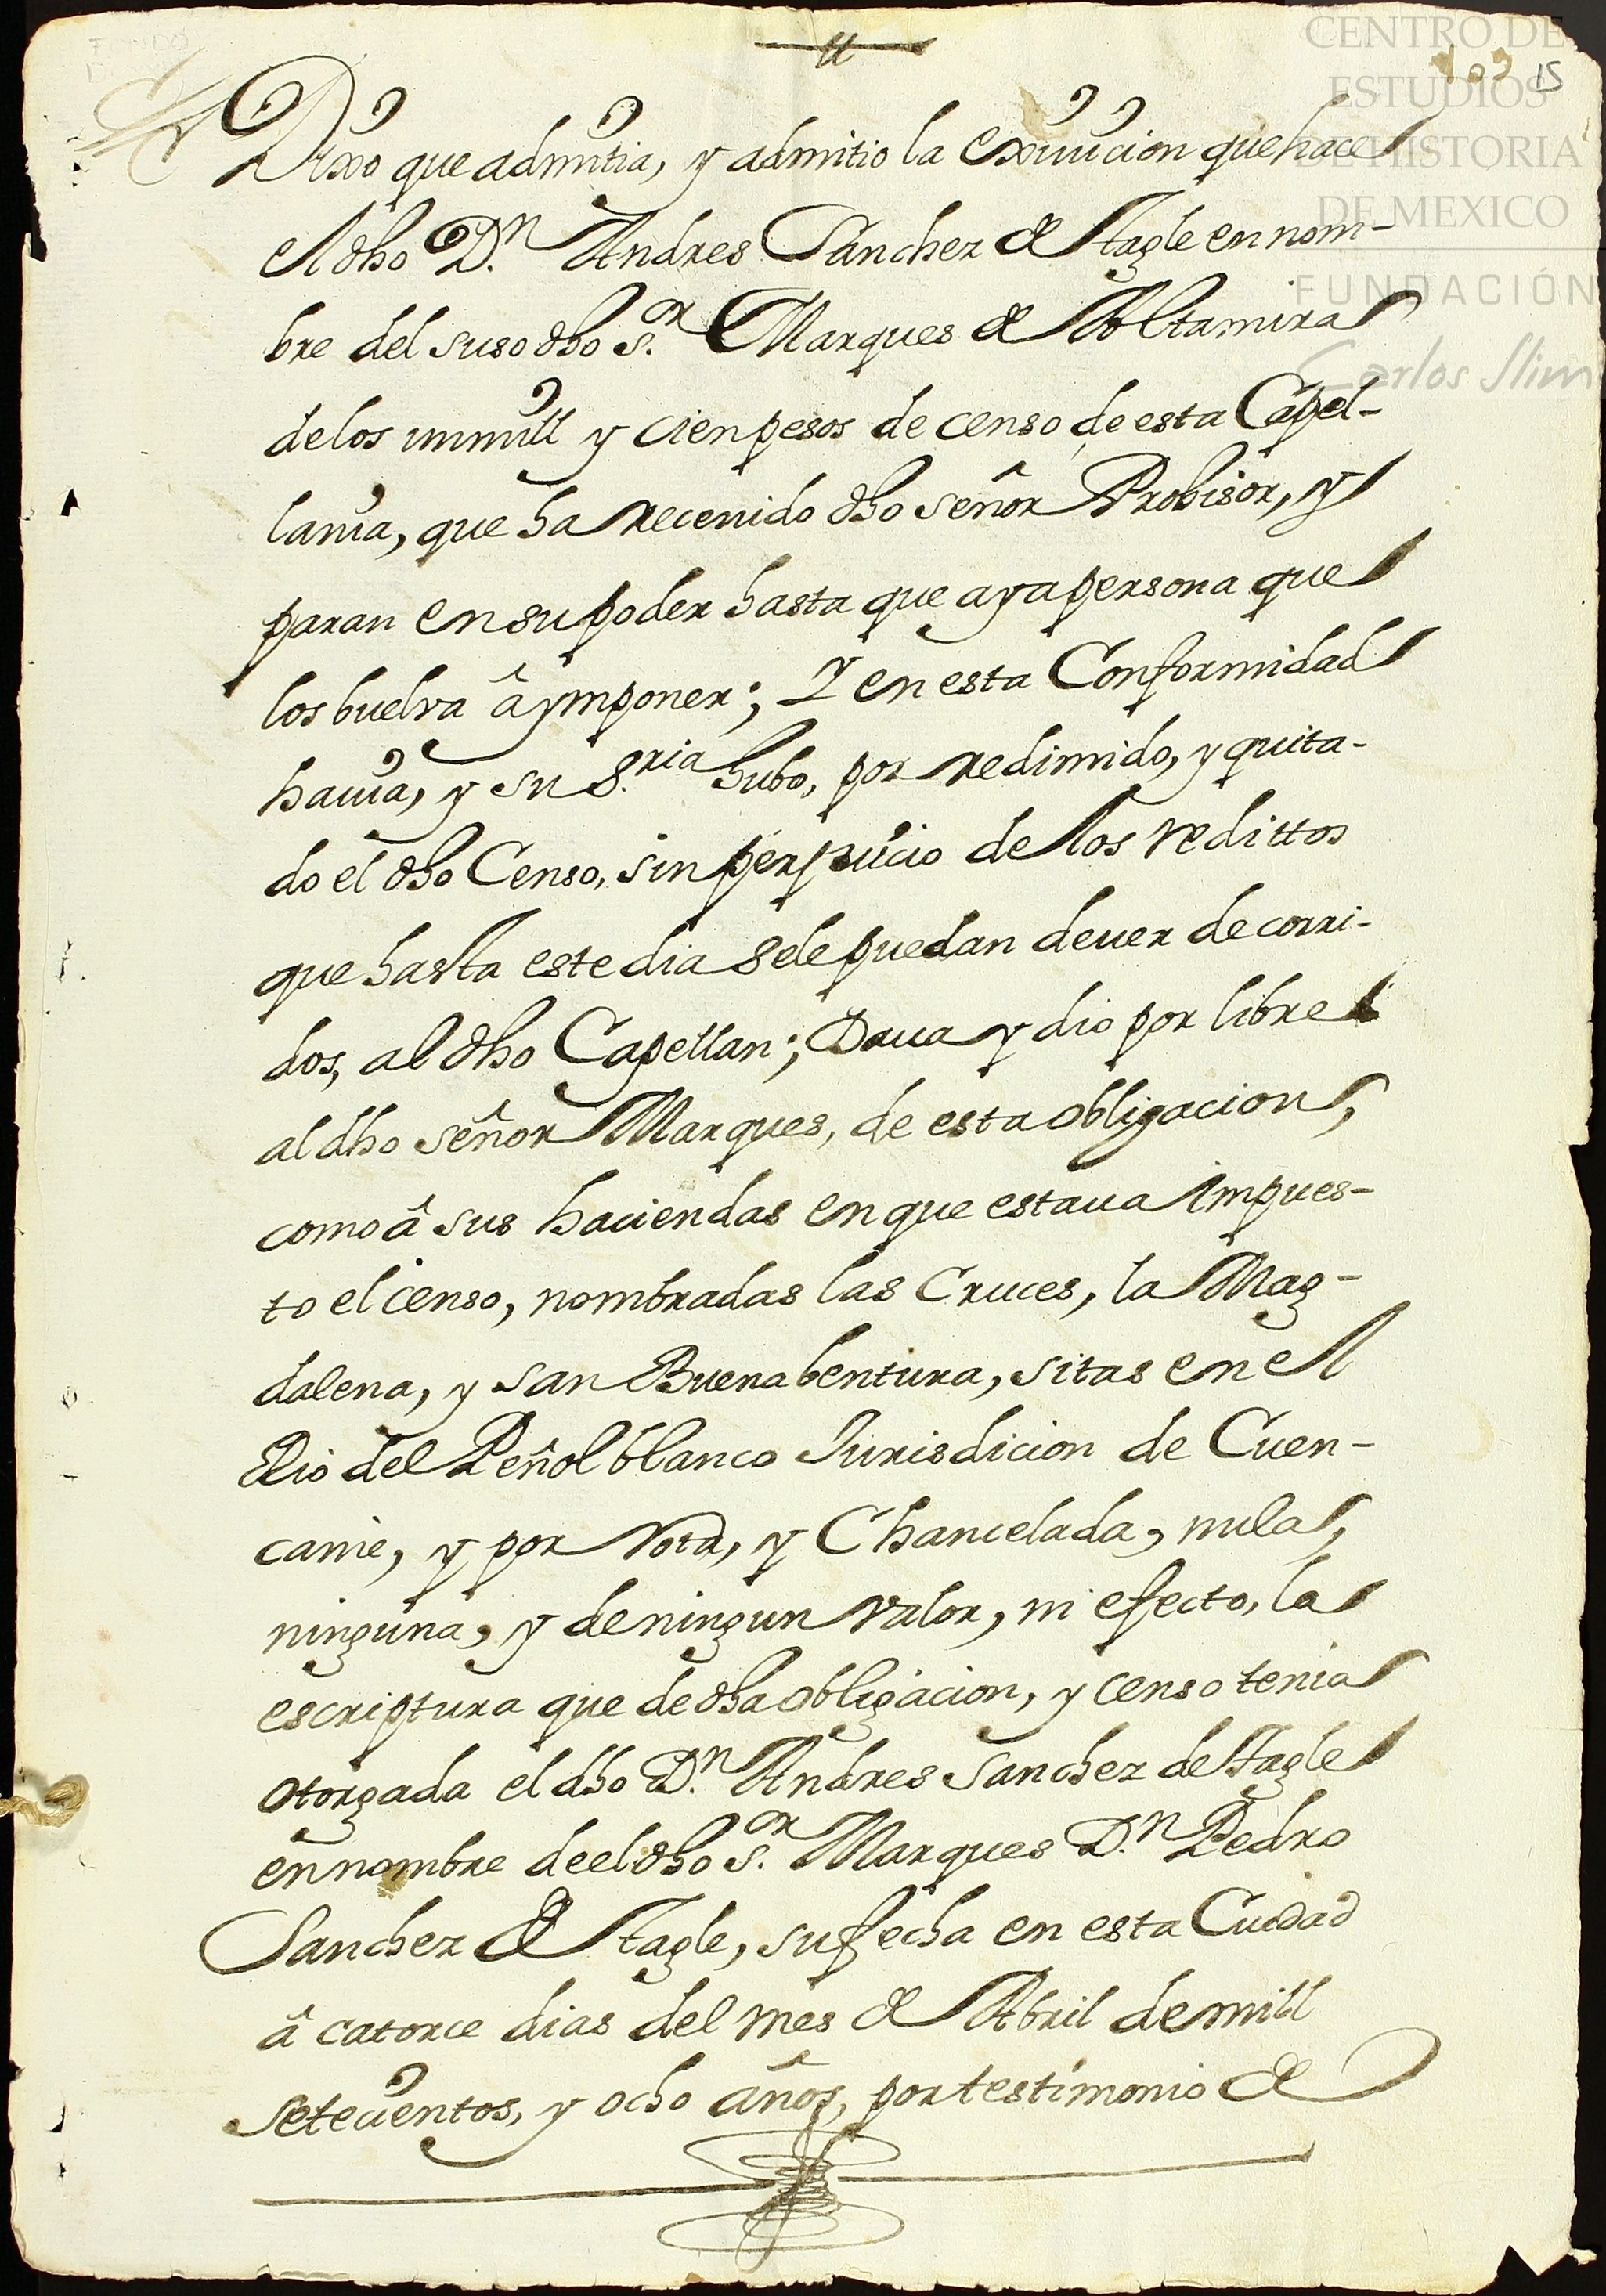 CENTRO DE
ESTUDIOS
DE HISTORIA
DE MEXICO
FUNDACIÓN
Carlos Slim
15
Dixo que admitia, y admitio la exiuicion que hace
el dho D.n Andres Sanchez de Tagle en nom-
bre del suso dho S.or Marques de Altamira
de los unmill y cien pesos de censo de esta Capel-
lania, que ha receuido dho señor Probisor, y
paran en su poder hasta que aya persona que
los buelva â ymponer; Y en esta Conformidad
hauia, y su S.ria hubo, por redimido, y quita-
do el dho Censo, sin perjuicio de los redittos
que hasta este dia se le puedan deuer de corri-
dos, al dho Capellan; Daua y dio por libre
al dho señor Marques, de esta obligacion,
como â sus haciendas en que estaua impues-
to el censo, nombradas las Cruces, la Mag-
dalena, y san Buenabentura, sitas en el
Rio del Peñol blanco Jurisdicion de Cuen-
came, y por rota, y Chancelada, nula,
ninguna, y de ningun valor, ni efecto, la
escriptura que de dha obligacion, y censo tenia
otorgada el dho D.n Andres Sanchez de Tagle
en nombre de el dho S.or Marques D.n Pedro
Sanchez de Tagle, su fecha en esta Ciudad
â catorce dias del mes de Abril de mill
setecientos, y ocho años, por testimonio de